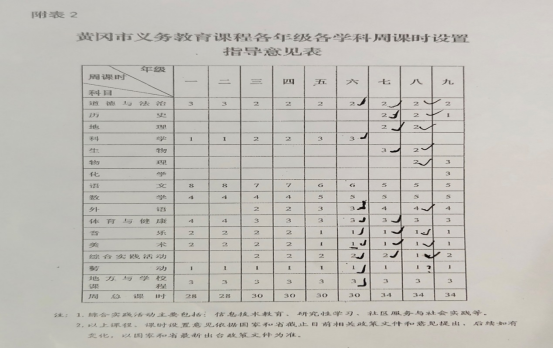 附表 2
黄冈市义务教育课程各年级各学科周课时设置
指导意见表
年级
周课时 一 二 三 四 五 六 七 八 九
科目
道德与法治 3 3 2 2 2 2 2 2 2
历史 2 2 1
地理 2 2
科学 1 1 2 2 3 3
生物 3 2
物理 2 3
化学 3
语文 8 8 7 7 6 6 5 5 5
数学 4 4 4 4 5 5 5 5 5
外语 2 2 3 3 4 4 4
体育与健康 4 4 3 3 3 3 3 3 3
音乐 2 2 2 2 1 1 1 1 1
美术 2 2 2 2 1 1 1 1 1
综合实践活动 2 2 2 2 2 1 2
劳动 1 1 1 1 1 1 1 1
地方与学校
课程 3 3 3 3 3 3 3 3 3
周总课时 28 28 30 30 30 30 34 34 34
注：1. 综合实践活动主要包括：信息技术教育、研究性学习、社区服务与社会实践等。
2. 以上课程、课时设置意见依据国家和省截止目前相关政策文件和意见提出，后续如有
变化，以国家和省最新出台政策文件为准。